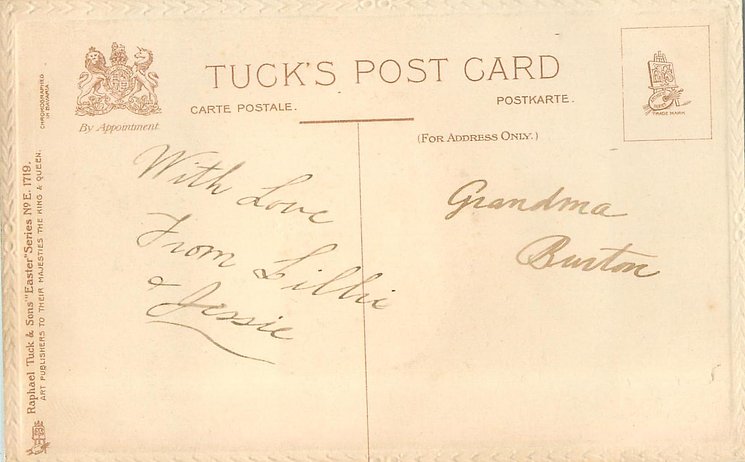 TUCK'S POST CARD
CARTE POSTALE.
POSTKARTE.
(FOR ADDRESS ONLY.)
By Appointment
CHROMOGRAPHED
IN BAVARIA
Raphael Tuck & Sons' "Easter" Series No E. 1719.
ART PUBLISHERS TO THEIR MAJESTIES THE KING & QUEEN.
TRADE MARK
With Love
From Lillie
& Jessie
Grandma
Burton